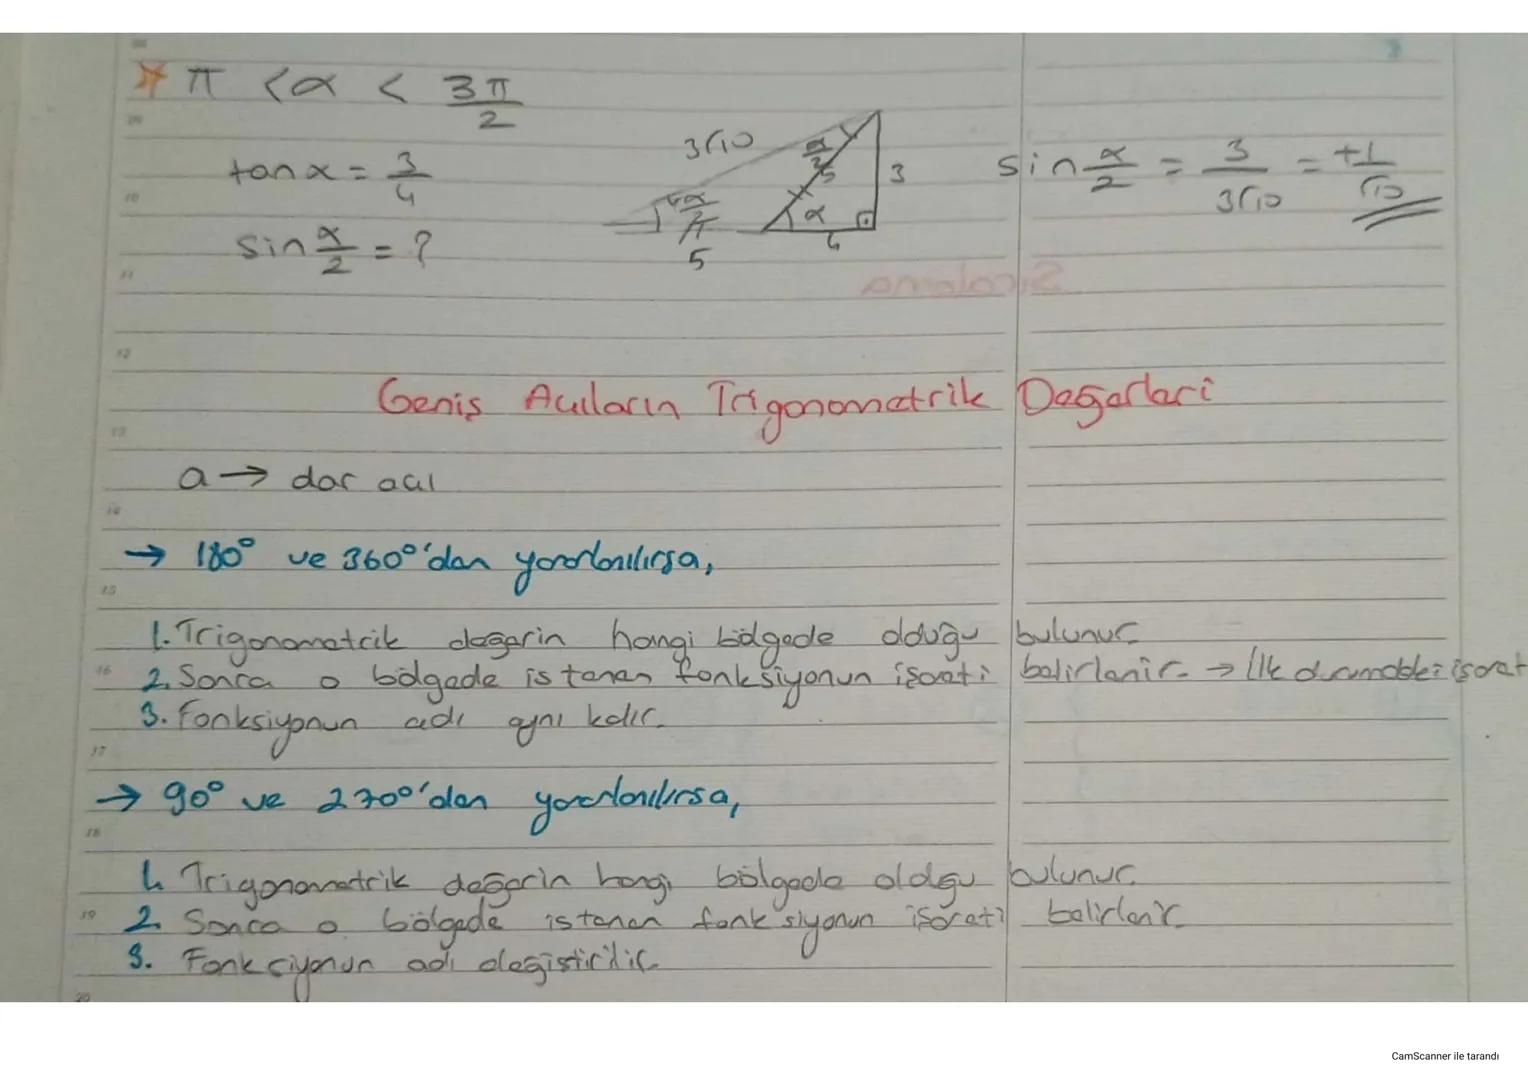 π < α < 3π/2
tanα = 3/4
sin α/2 = ?
3√10
α/2
5
3
α/2
α
4
5
sin α/2 = 3/3√10 = +1/√10
Geniş Açıların Trigonometrik Değerleri
a → dar açı
→ 180° ve 360°'dan yararlanılırsa,
1. Trigonometrik değerin hangi bölgede olduğu bulunur.
2. Sonra o bölgede istenen fonksiyonun işareti belirlenir. → İlk durumdaki işaret
3. Fonksiyonun adı aynı kalır.
→ 90° ve 270°'den yararlanılırsa,
1. Trigonometrik değerin hangi bölgede olduğu bulunur.
2. Sonra o bölgede istenen fonksiyonun işareti belirlenir.
3. Fonksiyonun adı değiştirilir.
CamScanner ile tarandı